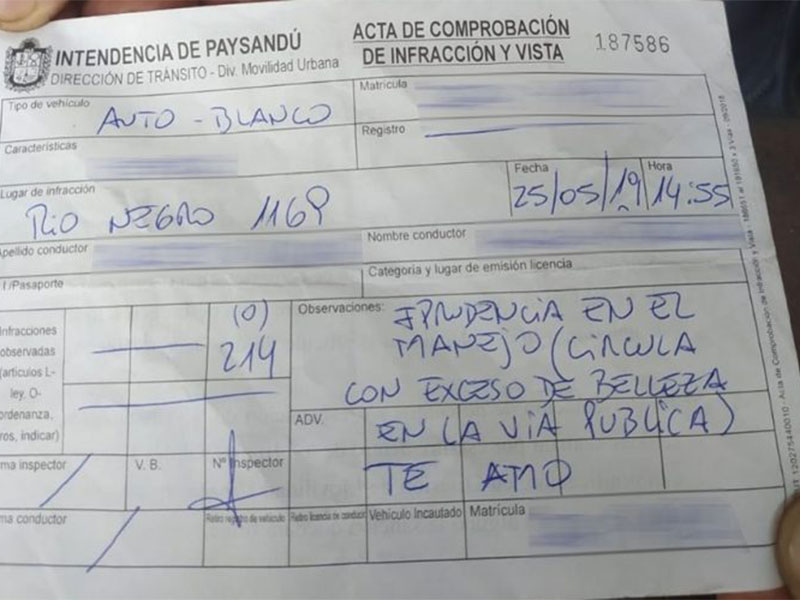 INTENDENCIA DE PAYSANDÚ
DIRECCIÓN DE TRÁNSITO - Div. Movilidad Urbana
ACTA DE COMPROBACIÓN
DE INFRACCIÓN Y VISTA
187586
Tipo de vehículo
AUTO - BLANCO
Matrícula
Características
Registro
Lugar de infracción
RIO NEGRO 1169
Fecha
25/05/19
Hora
14:55
Apellido conductor
Nombre conductor
I./Pasaporte
Categoria y lugar de emisión licencia
Infracciones
observadas
(artículos L-
ley, O-
ordenanza,
ros, indicar)
(O)
214
Observaciones:
IPRUDENCIA EN EL
MANEJO (CIRCULA
CON EXCESO DE BELLEZA
ADV.
EN LA VIA PUBLICA)
ma inspector
V. B.
Nº Inspector
TE AMO
ma conductor
Retiro registro de vehículo
Retiro licencia de conducir
Vehículo Incautado
Matrícula